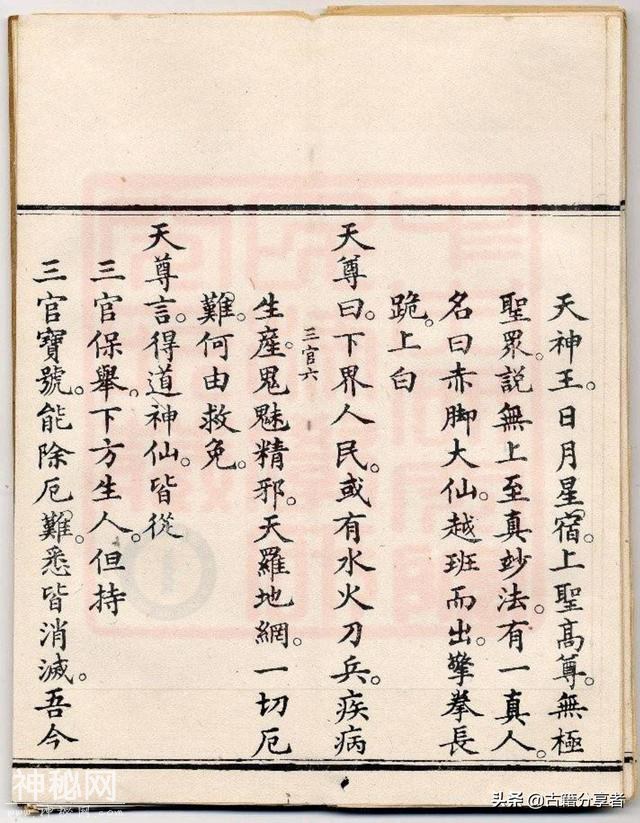 天神王。日月星宿。上聖高尊。無極
聖眾。説無上至真妙法。有一真人。
名曰赤脚大仙。越班而出。擎拳長
跪。上白
天尊曰。下界人民。或有水火刀兵疾病
三官六
生產鬼魅精邪。天羅地網。一切厄
難。何由救免。
天尊言。得道神仙。皆從
三官保舉。下方生人。但持
三官寶號。能除厄難。悉皆消滅。吾今
神秘网
头条 @古籍分享者